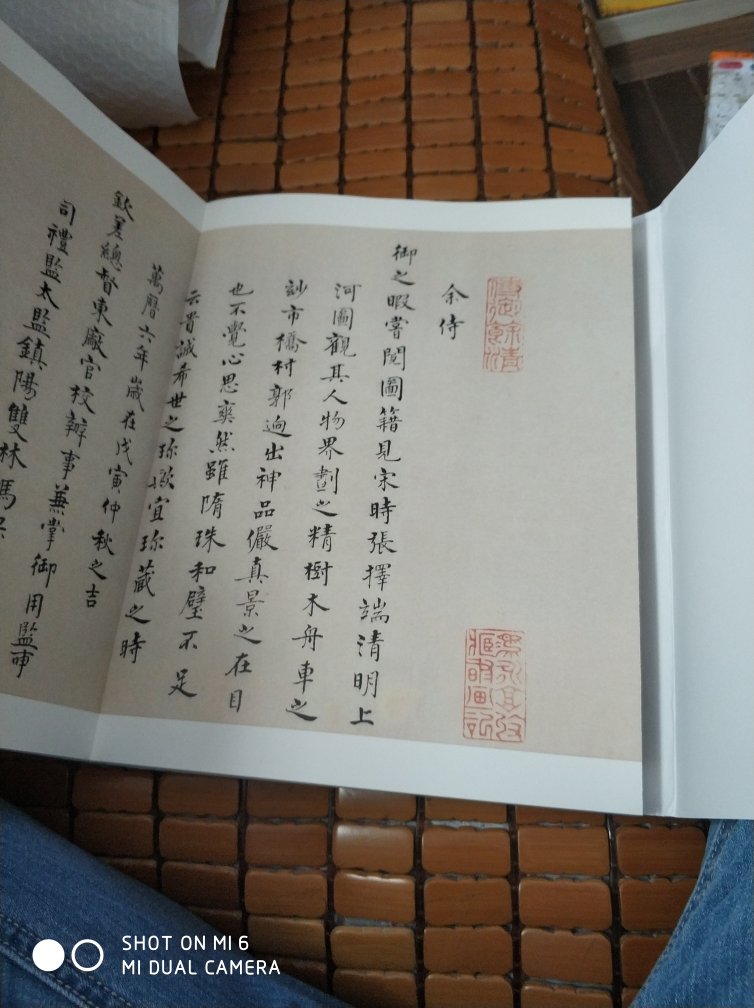 余侍
御之暇嘗閱圖籍見宋時張擇端清明上
河圖觀其人物界劃之精樹木舟車之
玅市橋村郭逈出神品儼真景之在目
也不覺心思爽然雖隋珠和璧不足
云貴誠希世之珎歟宜珎藏之時
萬曆六年歲在戊寅仲秋之吉
欽差總督東廠官校辦事蒹掌御用監事
司禮監太監鎮陽雙林馮
SHOT ON MI 6
MI DUAL CAMERA